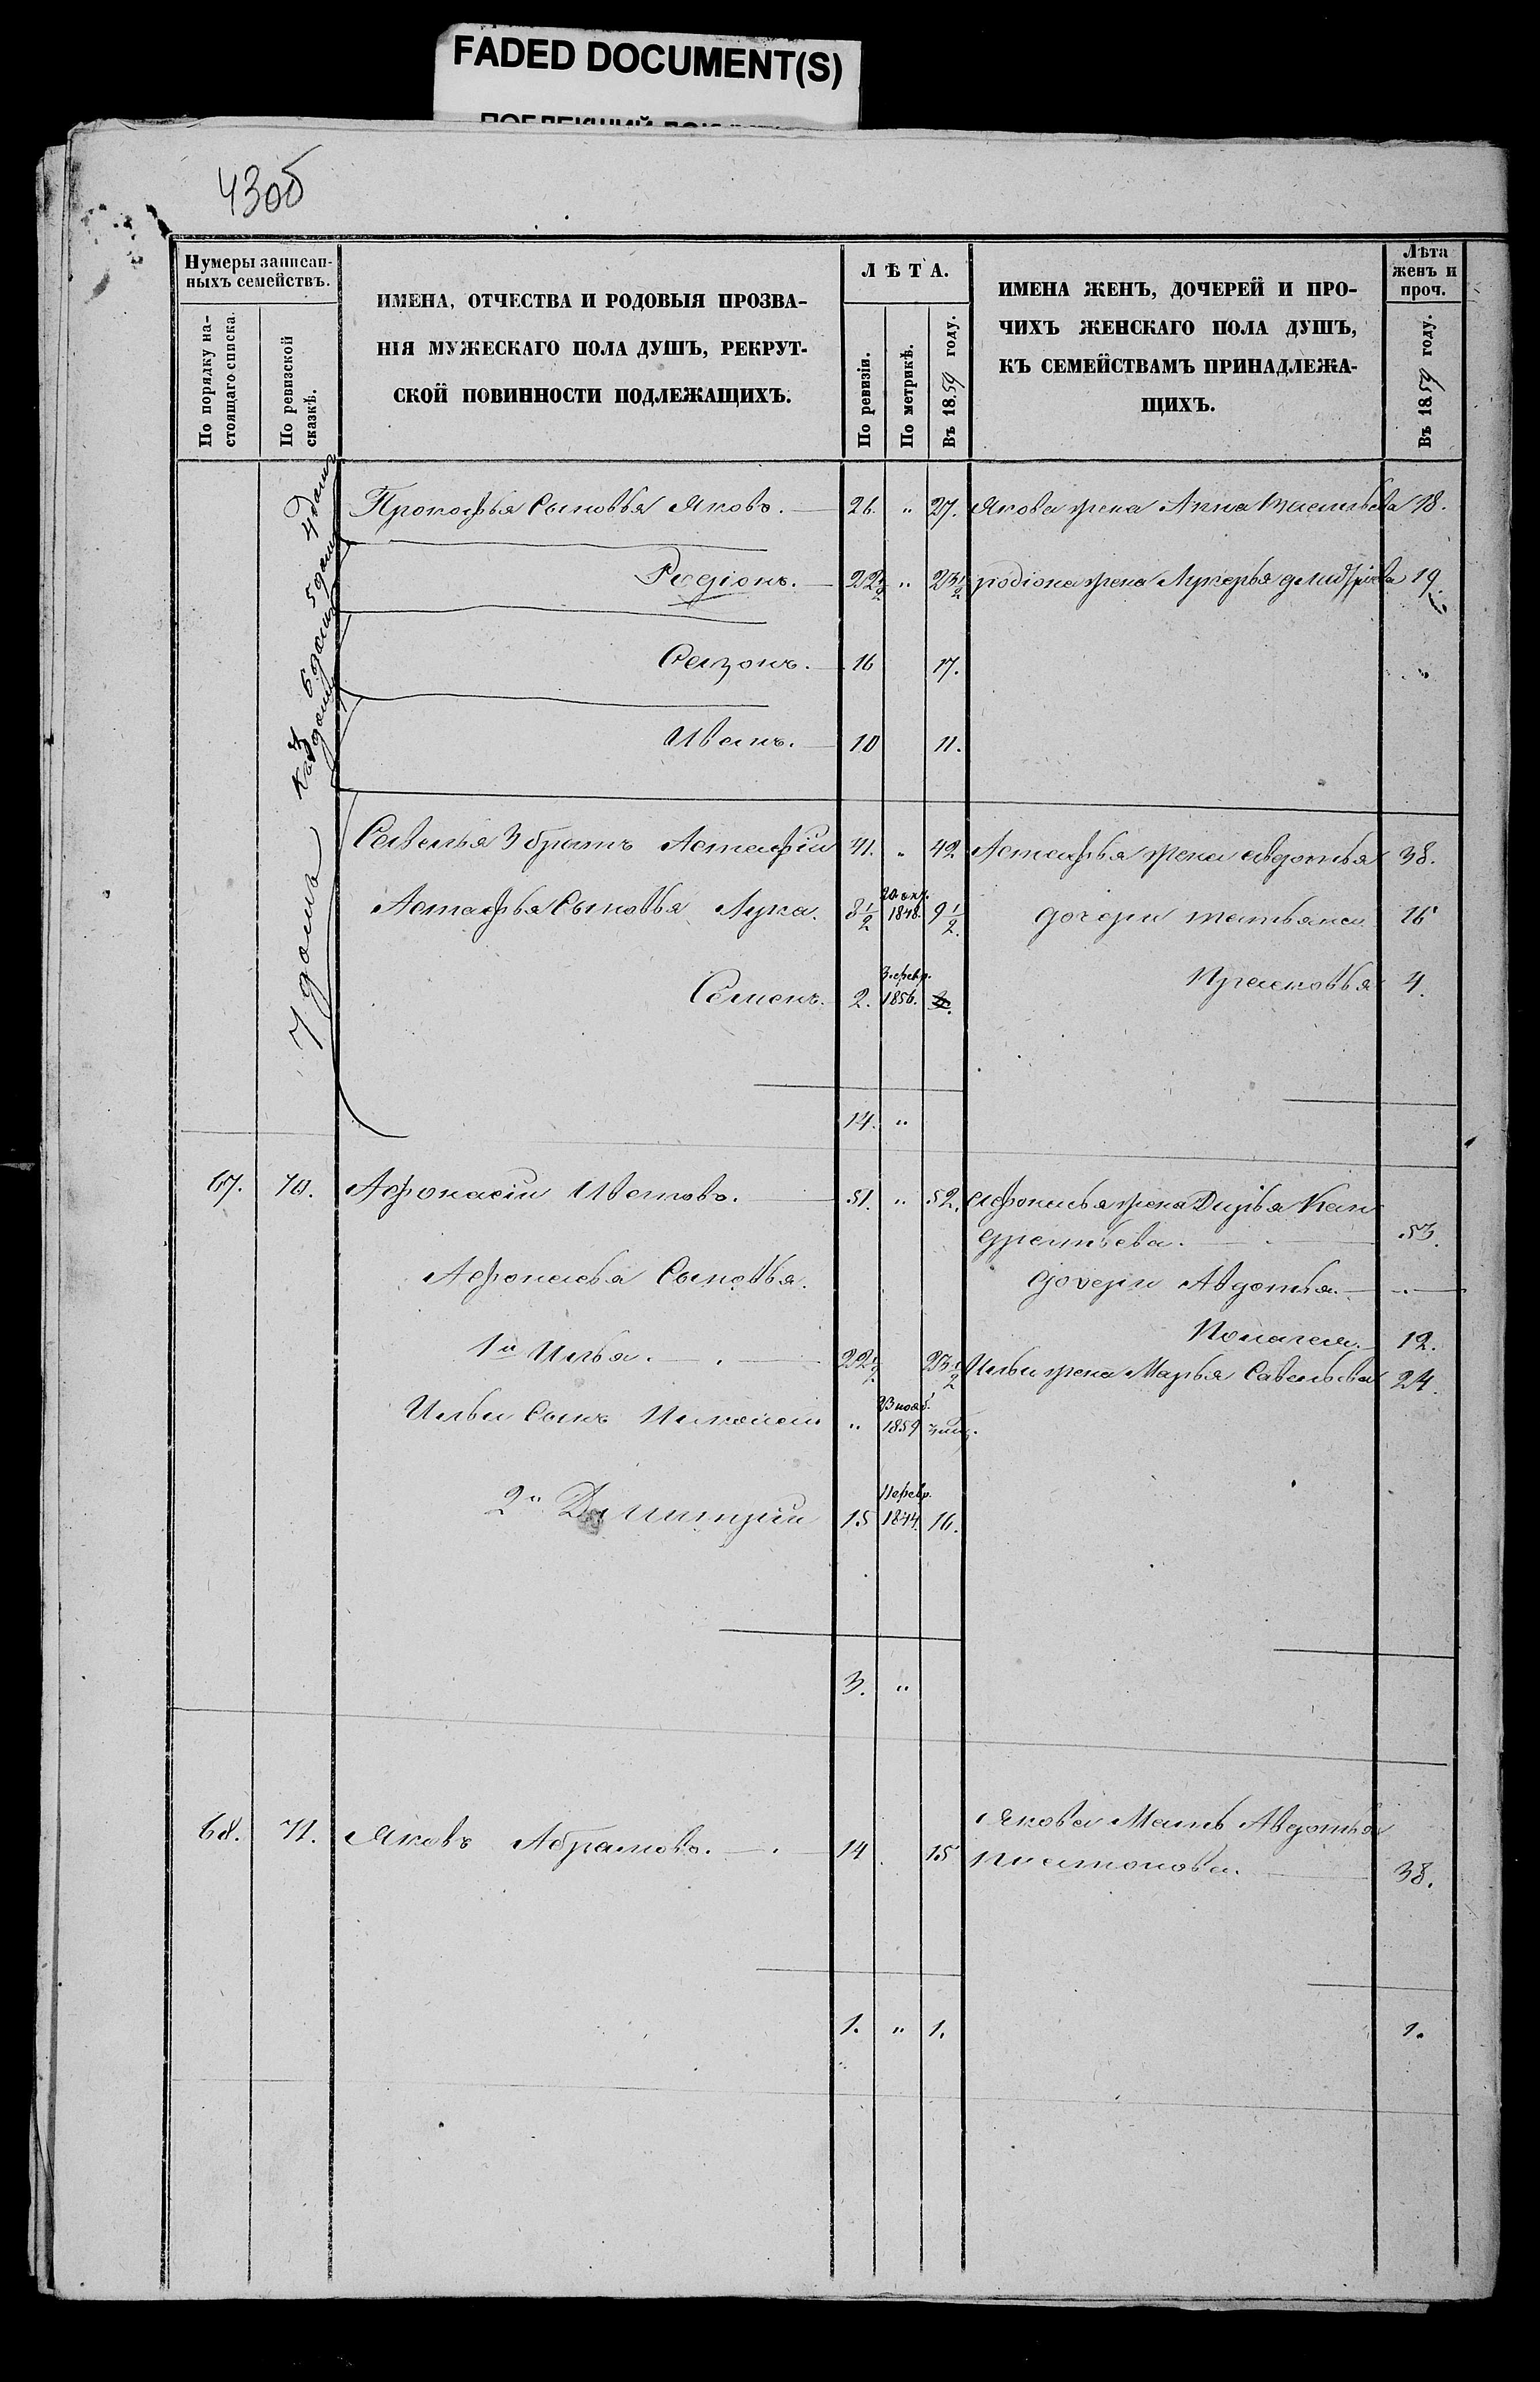 FADED DOCUMENT(S)
43об
Нумеры записан-
ныхъ семействъ.
По порядку на-
стоящаго списка.
По ревизской
сказкѣ.
ИМЕНА, ОТЧЕСТВА И РОДОВЫЯ ПРОЗВА-
НІЯ МУЖЕСКАГО ПОЛА ДУШЪ, РЕКРУТ-
СКОЙ ПОВИННОСТИ ПОДЛЕЖАЩИХЪ.
ЛѢТА.
По ревизіи.
По метрикѣ.
Въ 1859 году.
ИМЕНА ЖЕНЪ, ДОЧЕРЕЙ И ПРО-
ЧИХЪ ЖЕНСКАГО ПОЛА ДУШЪ,
КЪ СЕМЕЙСТВАМЪ ПРИНАДЛЕЖА-
ЩИХЪ.
Лѣта
женъ и
проч.
Въ 1859 году.
4 домъ
5 домъ
6 домъ
7 домъ
Прокофья Сыновья Яковъ. 26. " 27. Якова жена Анна Васильева 28.
Родіонъ. 22 1/2 " 23 1/2 родіона жена Лукерья дмидріева 19.
Сазонъ. 16 17. "
Иванъ. 10 11.
Савелья 3 братъ Астафіи 41. " 42 Астафья жена авдотья 38.
Астафья Сыновья Лука. 8 1/2 20 окт. 1848. 9 1/2. дочери татьяна 16
Семенъ. 2. 3. февр. 1856. Прасковья 4.
14. "
67. 70. Афонасіи Ивановъ. 51. " 52. афонасья жена Дарья Кан
дратьева. 53.
Афонасья Сыновья. дочери Авдотья. "
Пелагея. 12.
1й Илья. 22 1/2 23 1/2 Ильи жена Марья Савельева 24.
Ильи Сынъ Николаи " 23 нояб. 1859
2й Дмитрии 15 11 февр. 1844. 16.
3. "
68. 71. Яковъ Абрамовъ. 14 15 Якова Мать Авдотья
платонова. 38.
1. " 1. 1.